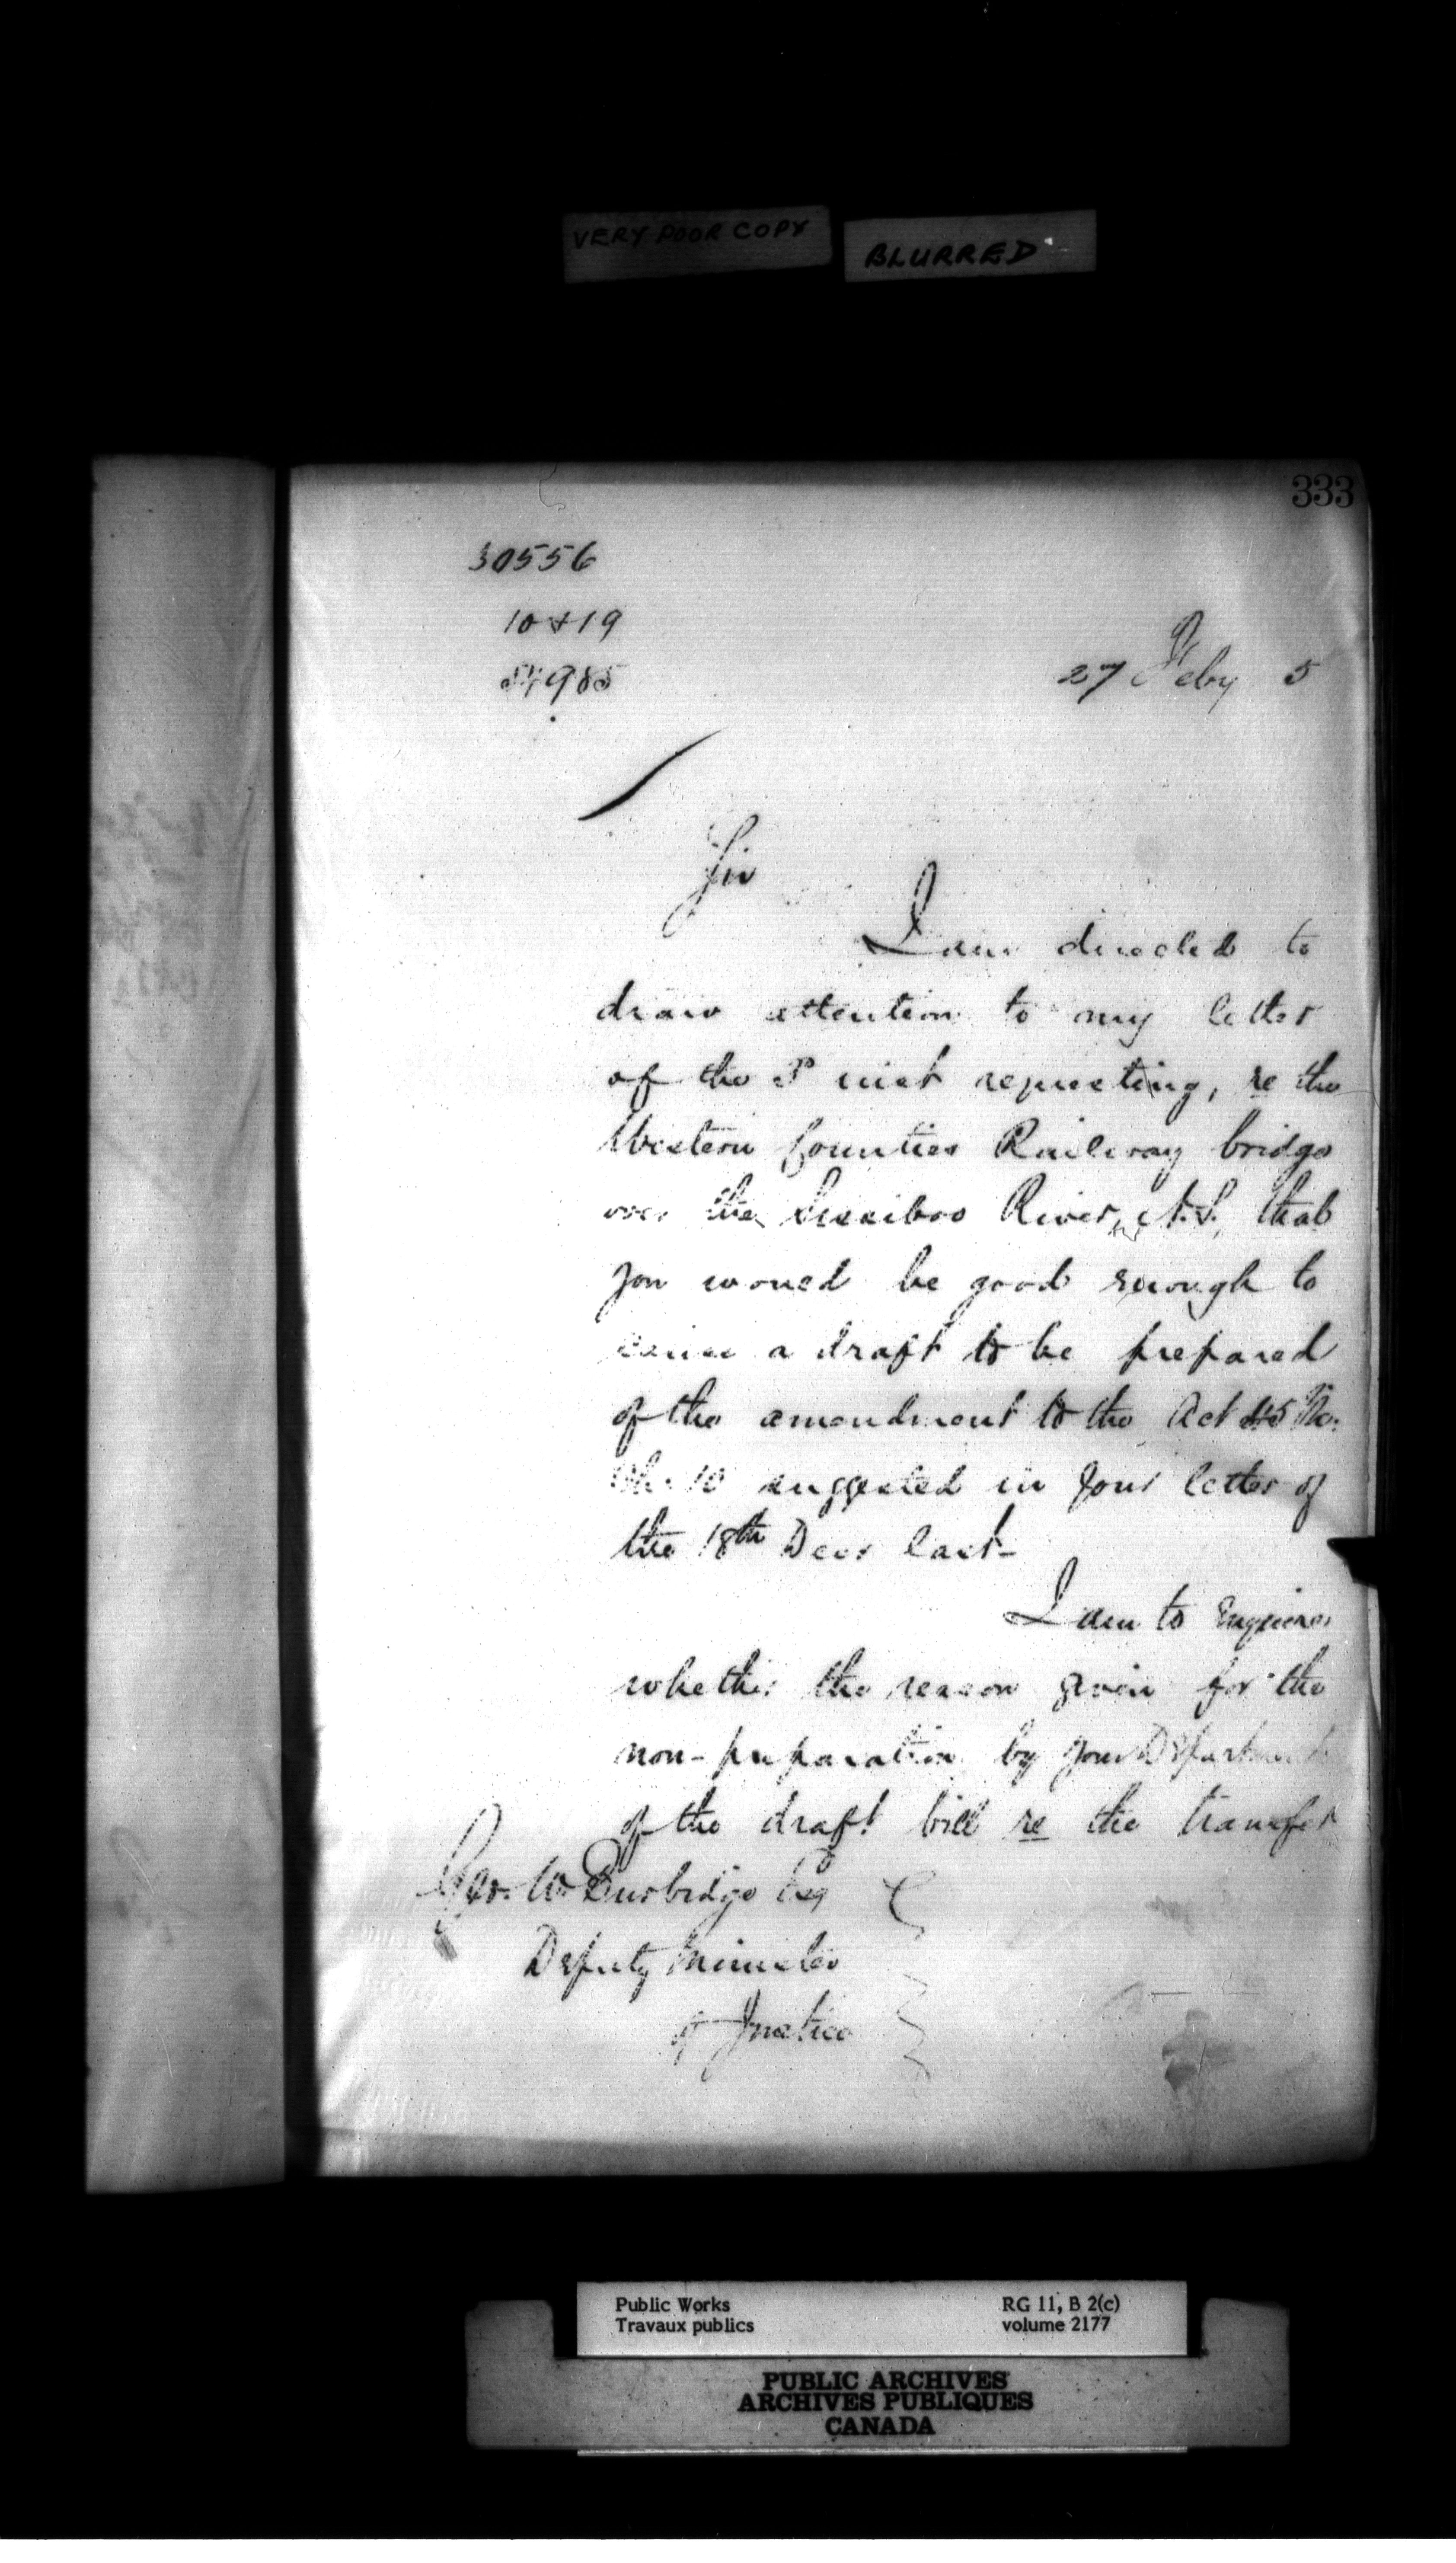 VERY POOR COPY
BLURRED
333
30556
10 + 19
985
27 Feby 5
Sir
I am directed to
draw attention to my letter
of the inst requesting, re the
Western Counties Railway bridge
over the Sissiboo River, N.S. that
you would be good enough to
cause a draft to be prepared
of the amendment to the Act 45 Vic.
Ch. 10 suggested in your letter of
the 18th Decr last-
I am to enquire
whether the reason given for the
non-preparation by your Department
of the draft bill re the transfer
Geo. W Burbidge Esq
Deputy Minister
of Justice
Public Works
Travaux publics
RG 11, B 2(c)
volume 2177
PUBLIC ARCHIVES
ARCHIVES PUBLIQUES
CANADA